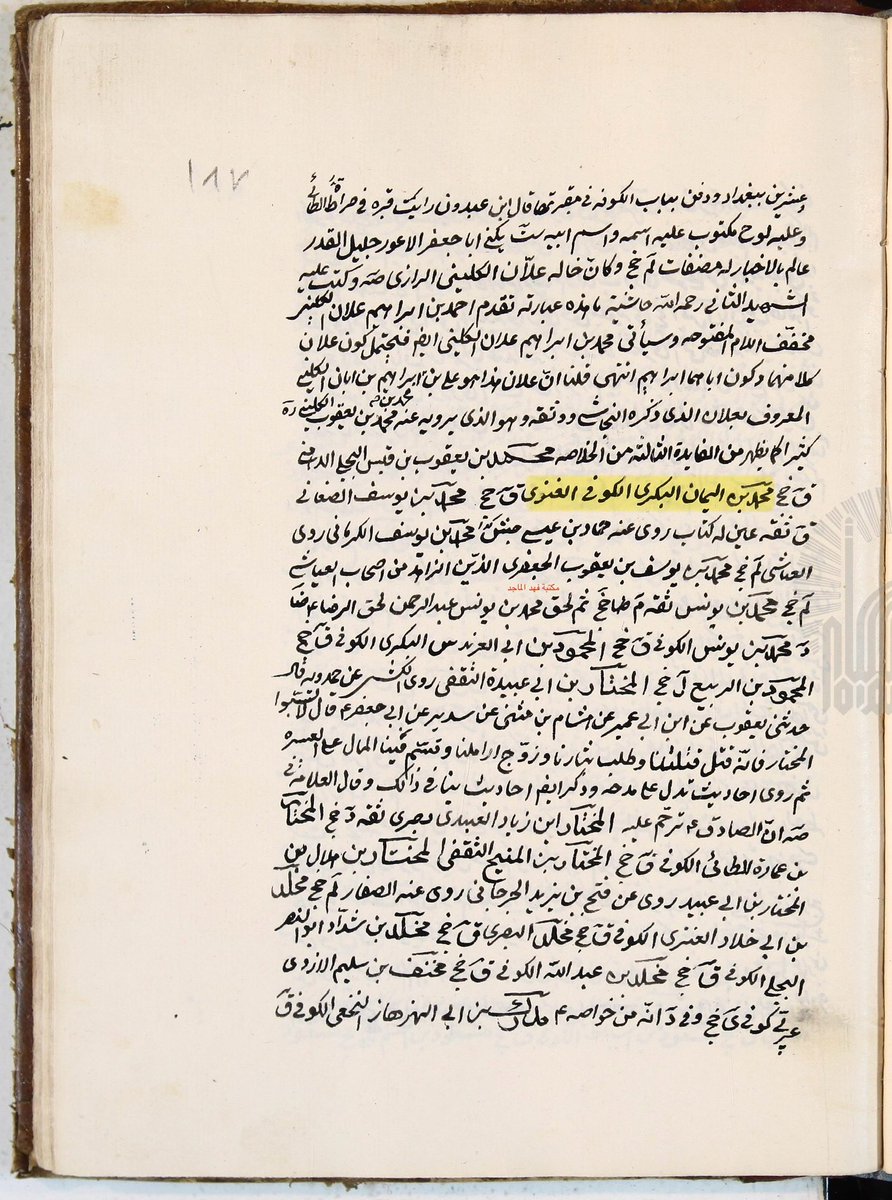 ١٨٧
وعشرين ببغداد ودفن بباب الكوفه في مقبرتها قال ابن عبدون رايت قبره في صراة الطائي
وعليه لوح مكتوب عليه اسمه واسم ابيه ست يكنى ابا جعفر الاعور جليل القدر
عالم بالاخبار له مصنفات لم خج وكان خاله علان الكليني الرازي صه وكتب عليه
الشهيد الثاني رحمه الله حاشية بهذه عبارته تقدم احمد بن ابراهيم علان الكليني
مخفف اللام المفتوحه وسيأتي محمد بن ابراهيم علان الكليني ايضا فيحتمل كون علان
كلا منهما وكون اباهما ابراهيم انتهى قلنا ان علان هذا هو علي بن ابراهيم بن ابان الكليني
المعروف بعلان الذي ذكره النجاشي ووثقه وهو الذي يرويه عنه محمد بن يعقوب الكليني ره
كثيرا كما يظهر من الفايدة الثالثه من الخلاصه محمد بن يعقوب بن قيس البجلي الدهني
ق خج محمد بن اليمان البكري الكوفي الغنوي ق خج محمد بن يوسف الصنعاني
ق ثقه عين له كتاب روى عنه حماد بن عيسى جش محمد بن يوسف الكرماني روى
العياشي لم خج محمد بن يوسف بن يعقوب الجعفري الدين الزاهد من اصحاب العياشي
مكتبة فهد الماجد
لم خج محمد بن يونس ثقه م ظا خج ثم لحق محمد بن يونس عبد الرحمن لحق الرضا ع ضا
د محمد بن يونس الكوفي ق خج المحمود بن ابي العرندس البكري الكوفي ق خج
المحمود بن الربيع ل خج المختار بن ابي عبيدة الثقفي روى الكشي عن حمدويه قال
حدثني يعقوب عن ابن ابي عمير عن هشام بن مثنى عن سدير عن ابي جعفر ع قال لا تسبوا
المختار فانه قتل قتلتنا وطلب بثارنا وزوج اراملنا وقسم فينا المال على العسره
ثم روى احاديث تدل على مدحه وذكر ايضا احاديث ينافي ذالك وقال العلامه في
صه ان الصادق ع ترحم عليه المختار ابن زياد العبدي بصري ثقه د خج المختار
بن عمارة الطائي الكوفي ق خج المختار بن المنيح الثقفي المختار بن هلال بن
المختار بن ابي عبيد روى عن فتح بن يزيد الجرجاني روى عنه الصفار لم خج مخلد
بن ابي خلاد العنزي الكوفي ق خج مخلد البصري ق خج مخلد بن شداد ابو النصر
البجلي الكوفي ق خج مخلد بن عبد الله الكوفي ق خج مخنف بن سليم الازدي
عربي كوفي ي خج وفي د انه من خواصه ع مدرك بن ابي الهزهاز النخعي الكوفي ق